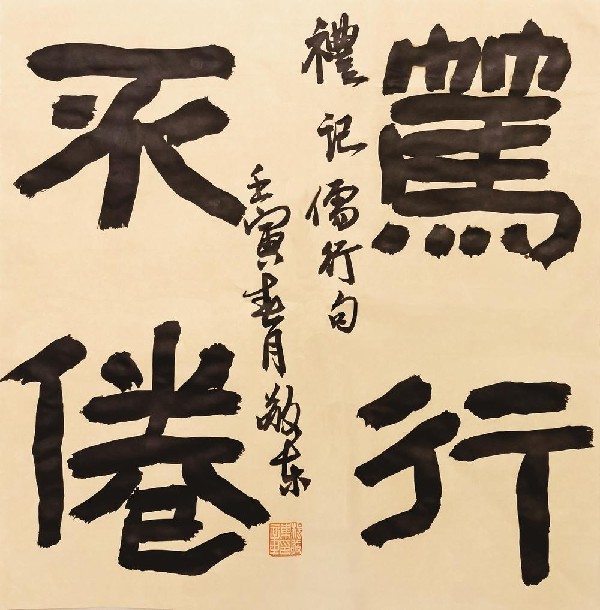 篤行
不倦
禮記儒行句
壬寅春月敬東